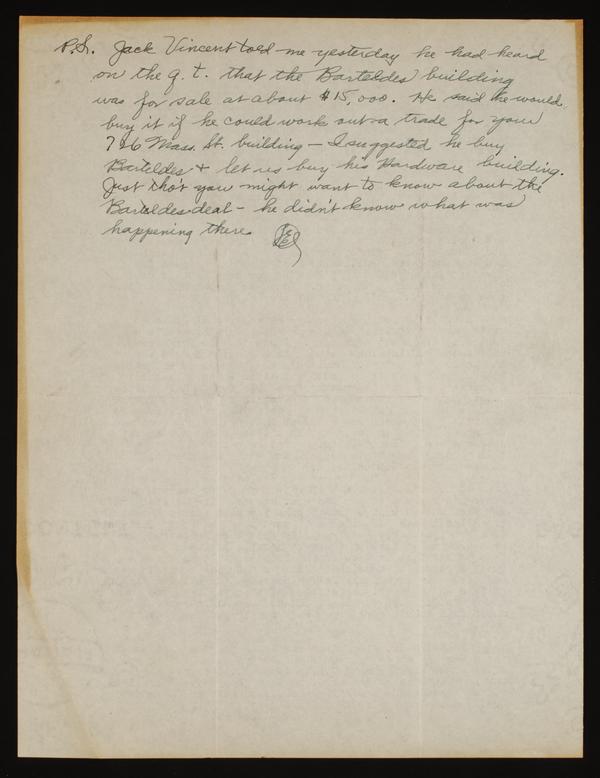 P.S. Jack Vincent told me yesterday he had heard
on the q.t. that the Barteldes building
was for sale at about $15,000. He said he would
buy it if he could work out a trade for your
726 Mass. St. building - I suggested he buy
Barteldes & let us buy his Hardware building.
Just tho't you might want to know about the
Barteldes deal - he didn't know what was
happening there